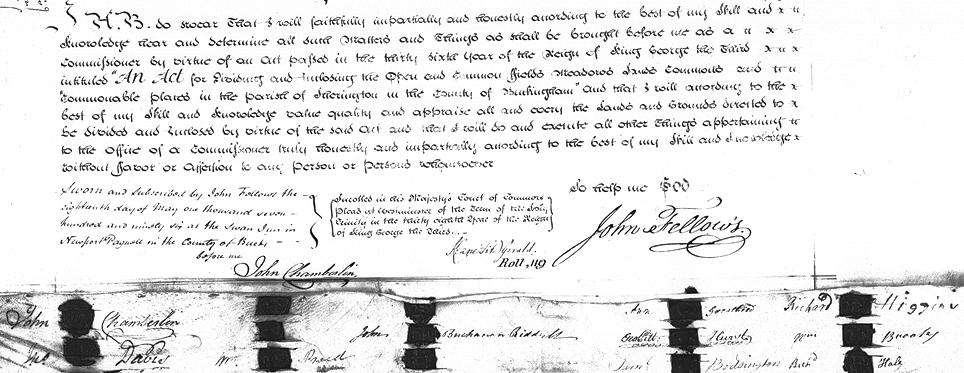 I A.B. do swear that I will faithfully impartially and honestly according to the best of my Skill and
Knowledge hear and determine all such Matters and Things as shall be brought before me as a
Commissioner by virtue of an Act passed in the thirty sixth Year of the Reign of King George the Third
intituled "An Act for Dividing and Inclosing the Open and Common Fields Meadows Lands Commons and
"Commonable places in the parish of Sherington in the County of Buckingham" And that I will according to the
best of my Skill and Knowledge value quality and appraise all and every the Lands and Grounds directed to
be divided and Inclosed by virtue of the said Act and that I will do and execute all other Things appertaining
to the office of a Commissioner truly honestly and impartially according to the best of my Skill and Knowledge
without Favor or Affection to any Person or Persons whomsoever
So help me God
Sworn and Subscribed by John Fellows the
eighteenth day of May one thousand seven
hundred and ninety six at the Swan Inn in
Newport Pagnell in the County of Bucks
before me
John Chamberlin
Inrolled in his Majesty's Court of Common
Pleas at Westminster of the Term of the Holy
Trinity in the thirty eighth Year of the Reign
of King George the Third
Roll, 119
John Fellows.
John Chamberlin
John Buchanan Riddell
Ann Goodred
Richard Higgins
Wm Brooks
Davis
Wm Praed
Boddington